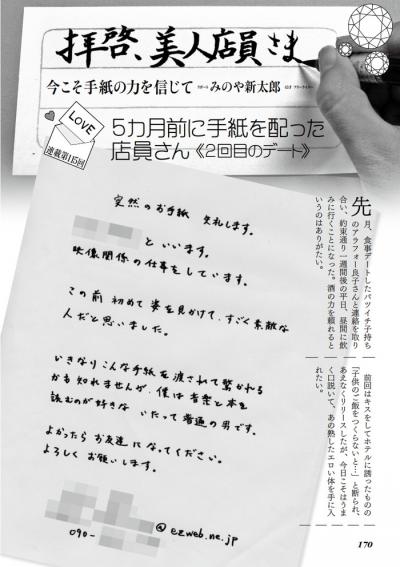 拝啓、美人店員さま
今こそ手紙の力を信じて
みのや新太郎
LOVE
連載第115回
5カ月前に手紙を配った
店員さん《2回目のデート》
突然のお手紙 失礼します。
といいます。
映像関係の仕事をしています。
この前 初めて 姿を見かけて、すごく素敵な
人だと思いました。
いきなりこんな手紙を渡されて驚かれる
かも知れませんが、僕は音楽と本を
読むのが好きな いたって普通の男です。
よかったら お友達になってください。
よろしく お願いします。
@ezweb.ne.jp
090-
先月、食事デートしたバツイチ子持ち
のアラフォー良子さんと連絡を取り
合い、約束通り一週間後の平日、昼間に飲
みに行くことになった。酒の力を頼れると
いうのはありがたい。
前回はキスをしてホテルに誘ったものの
「子供のご飯をつくらないと…」と断られ、
あえなくリリースしたが、今日こそはうま
く口説いて、あの熟したエロい体を手に入
れたい。
170